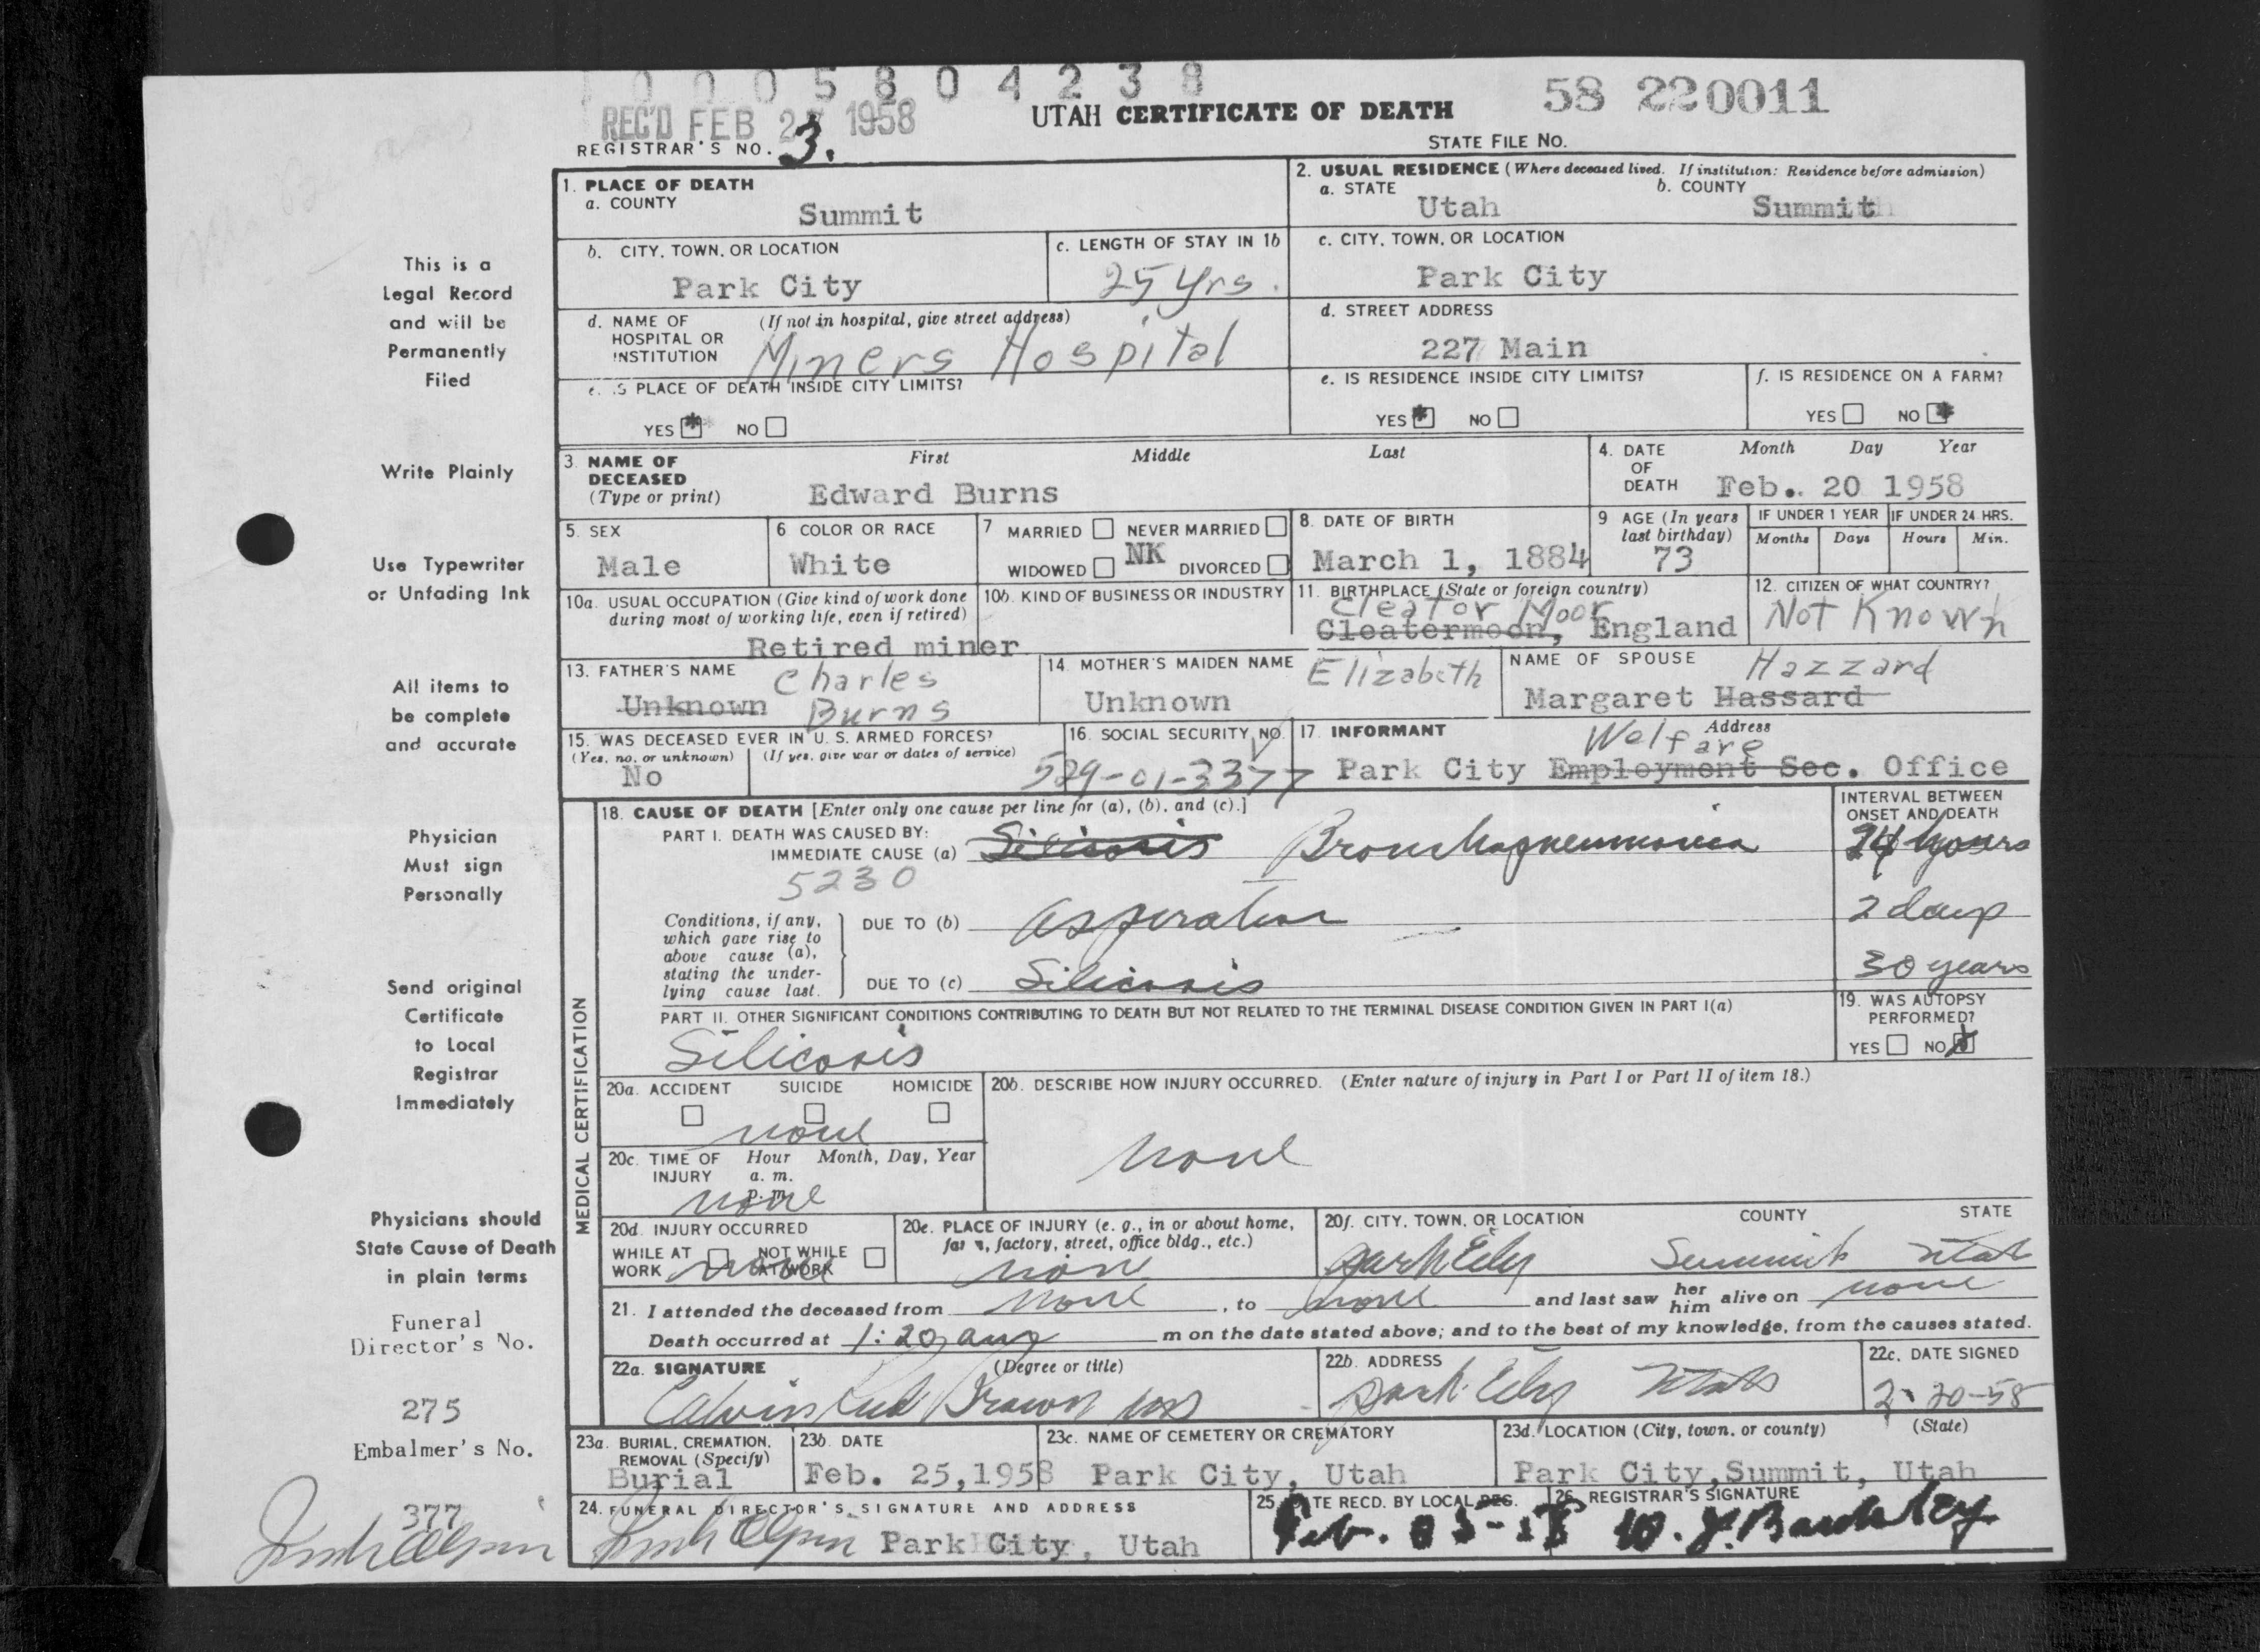 0005804238
REC'D FEB 27 1958
UTAH CERTIFICATE OF DEATH
58 220011
REGISTRAR'S NO. 3.
STATE FILE No.
1. PLACE OF DEATH
a. COUNTY
Summit
2. USUAL RESIDENCE (Where deceased lived. If institution: Residence before admission)
a. STATE
Utah
b. COUNTY
Summit
b. CITY, TOWN, OR LOCATION
Park City
c. LENGTH OF STAY IN 1b
25 Yrs.
c. CITY, TOWN, OR LOCATION
Park City
d. NAME OF HOSPITAL OR INSTITUTION
(If not in hospital, give street address)
Miners Hospital
d. STREET ADDRESS
227 Main
e. IS PLACE OF DEATH INSIDE CITY LIMITS?
YES NO
e. IS RESIDENCE INSIDE CITY LIMITS?
YES NO
f. IS RESIDENCE ON A FARM?
YES NO
3. NAME OF DECEASED
(Type or print)
First Middle Last
Edward Burns
4. DATE OF DEATH
Month Day Year
Feb. 20 1958
5. SEX
Male
6 COLOR OR RACE
White
7 MARRIED NEVER MARRIED
WIDOWED NK DIVORCED
8. DATE OF BIRTH
March 1, 1884
9 AGE (In years last birthday)
73
IF UNDER 1 YEAR
Months Days
IF UNDER 24 HRS.
Hours Min.
10a. USUAL OCCUPATION (Give kind of work done during most of working life, even if retired)
Retired miner
10b. KIND OF BUSINESS OR INDUSTRY
11. BIRTHPLACE (State or foreign country)
Cleator Moor
Cleatermoon, England
12. CITIZEN OF WHAT COUNTRY?
Not Known
13. FATHER'S NAME
Charles
Unknown Burns
14. MOTHER'S MAIDEN NAME
Elizabeth
Unknown
NAME OF SPOUSE
Hazzard
Margaret Hassard
15. WAS DECEASED EVER IN U. S. ARMED FORCES?
(Yes, no, or unknown) (If yes, give war or dates of service)
No
16. SOCIAL SECURITY NO.
529-01-3377
17. INFORMANT
Address
Welfare
Park City Employment Sec. Office
18. CAUSE OF DEATH [Enter only one cause per line for (a), (b), and (c).]
PART I. DEATH WAS CAUSED BY:
IMMEDIATE CAUSE (a) Silicosis Bronchopneumonia
5230
INTERVAL BETWEEN ONSET AND DEATH
24 hours
Conditions, if any, which gave rise to above cause (a), stating the underlying cause last.
DUE TO (b) Aspiration
2 days
DUE TO (c) Silicosis
30 years
PART II. OTHER SIGNIFICANT CONDITIONS CONTRIBUTING TO DEATH BUT NOT RELATED TO THE TERMINAL DISEASE CONDITION GIVEN IN PART I(a)
Silicosis
19. WAS AUTOPSY PERFORMED?
YES NO
MEDICAL CERTIFICATION
20a. ACCIDENT SUICIDE HOMICIDE
none
20b. DESCRIBE HOW INJURY OCCURRED. (Enter nature of injury in Part I or Part II of item 18.)
none
20c. TIME OF INJURY
Hour Month, Day, Year
a. m.
p. m.
none
20d. INJURY OCCURRED
WHILE AT WORK NOT WHILE AT WORK
none
20e. PLACE OF INJURY (e. g., in or about home, farm, factory, street, office bldg., etc.)
none
20f. CITY, TOWN, OR LOCATION COUNTY STATE
Park City Summit Utah
21. I attended the deceased from none, to none and last saw her him alive on none
Death occurred at 1:20 am m on the date stated above; and to the best of my knowledge, from the causes stated.
22a. SIGNATURE (Degree or title)
Calvin Brown
22b. ADDRESS
Park City Utah
22c. DATE SIGNED
2-20-58
23a. BURIAL, CREMATION, REMOVAL (Specify)
Burial
23b. DATE
Feb. 25,1958
23c. NAME OF CEMETERY OR CREMATORY
Park City, Utah
23d. LOCATION (City, town, or county) (State)
Park City, Summit, Utah
24. FUNERAL DIRECTOR'S SIGNATURE AND ADDRESS
Park City, Utah
25 DATE RECD. BY LOCAL REG.
26. REGISTRAR'S SIGNATURE
This is a
Legal Record
and will be
Permanently
Filed
Write Plainly
Use Typewriter
or Unfading Ink
All items to
be complete
and accurate
Physician
Must sign
Personally
Send original
Certificate
to Local
Registrar
Immediately
Physicians should
State Cause of Death
in plain terms
Funeral
Director's No.
275
Embalmer's No.
377